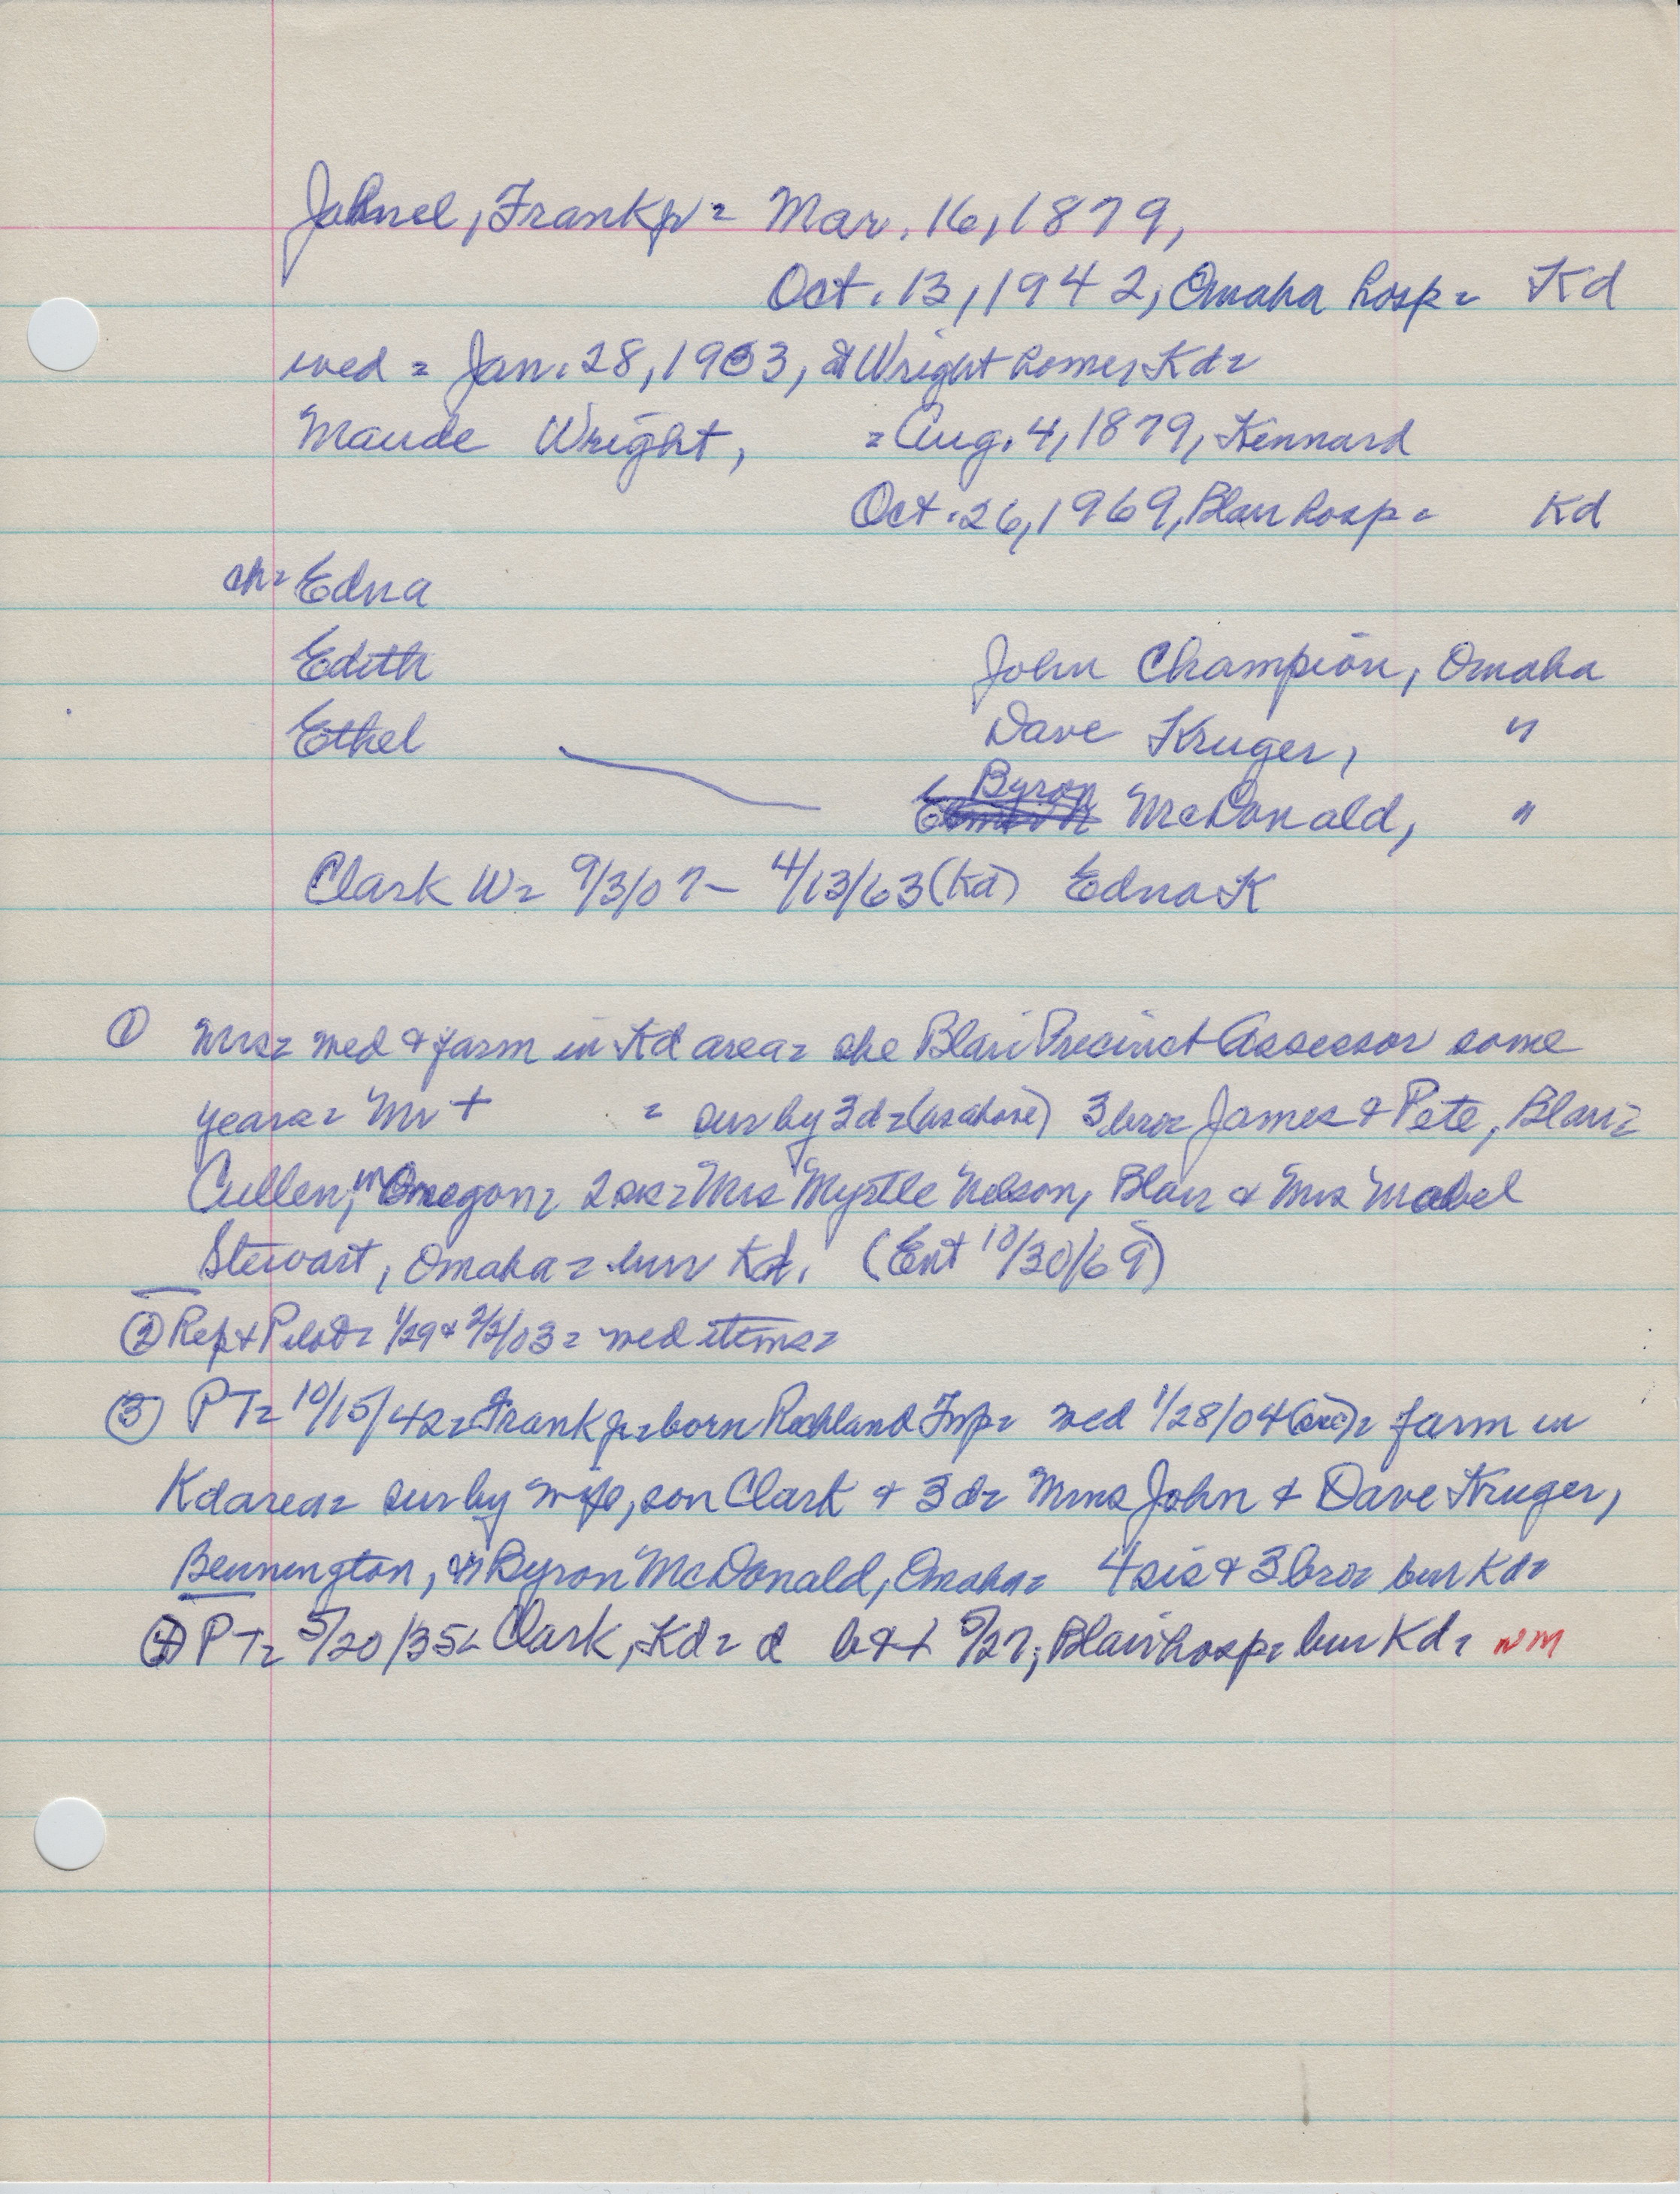 Jahnel, Frank jr = Mar. 16, 1879,
Oct. 13, 1942, Omaha hosp = Kd
wed = Jan. 28, 1903, at Wright home, Kd =
Maude Wright, = Aug. 4, 1879, Kennard
Oct. 26, 1969, Blair hosp = Kd
ch = Edna
Edith John Champion, Omaha
Ethel Dave Kruger, "
Byron McDonald, "
Clark W = 9/3/07 - 4/13/63 (Kd) Edna K
① Mrs = wed & farm in Kd area = she Blair Precinct Assessor some
years = Mr + = sur by 3 d = (as above) 3 bro = James & Pete, Blair =
Cullen, in Oregon, 2 sis = Mrs Myrtle Nelson, Blair & Mrs Mabel
Stewart, Omaha = bur Kd. (Ent 10/30/69)
② Rep & Pilot = 1/29 & 2/2/03 = wed items =
③ PT = 10/15/42 = Frank jr = born Richland Twp = wed 1/28/04 (sic) = farm in
Kd area = sur by wife, son Clark & 3 d = Mmes John & Dave Kruger,
Bennington, & Byron McDonald, Omaha = 4 sis & 3 bro = bur Kd =
④ PT = 5/20/35 = Clark, Kd = d b & + 5/27, Blair hosp = bur Kd = NM